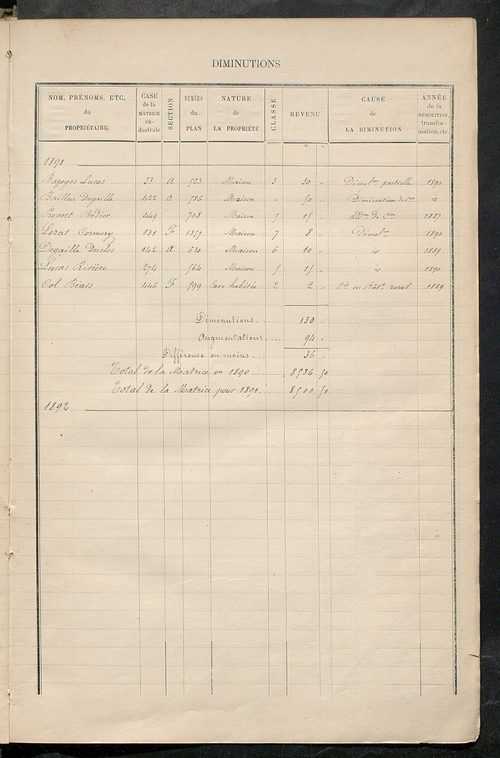 DIMINUTIONS
NOM, PRÉNOMS, ETC. du PROPRIÉTAIRE
CASE de la MATRICE ca- dastrale
SECTION
NUMÉRO du PLAN
NATURE de LA PROPRIÉTÉ
CLASSE
REVENU
CAUSE de LA DIMINUTION
ANNÉE de la DÉMOLITION, transfor- mation, etc.
1891
Lucas 33 A 523 Maison 3 30 " Démol.on partielle 1890
422 A 786 Maison " 50 " Diminution de C.on is
449 708 Maison 5 15 1887
Cormery 131 F 1357 Maison 7 8 Démol.on 1890
Degaille Duclos 142 A 630 Maison 6 10 " is 1889
Lucas Rivière 274 564 Maison 5 15 " is 1890
Col Biais 446 F 599 Cave habitée 2 2 " rural 1889
Diminutions 130
Augmentations 94
Différence en moins 36
Total de la Matrice en 1890 8536 50
Total de la Matrice pour 1891 8500 50
1892